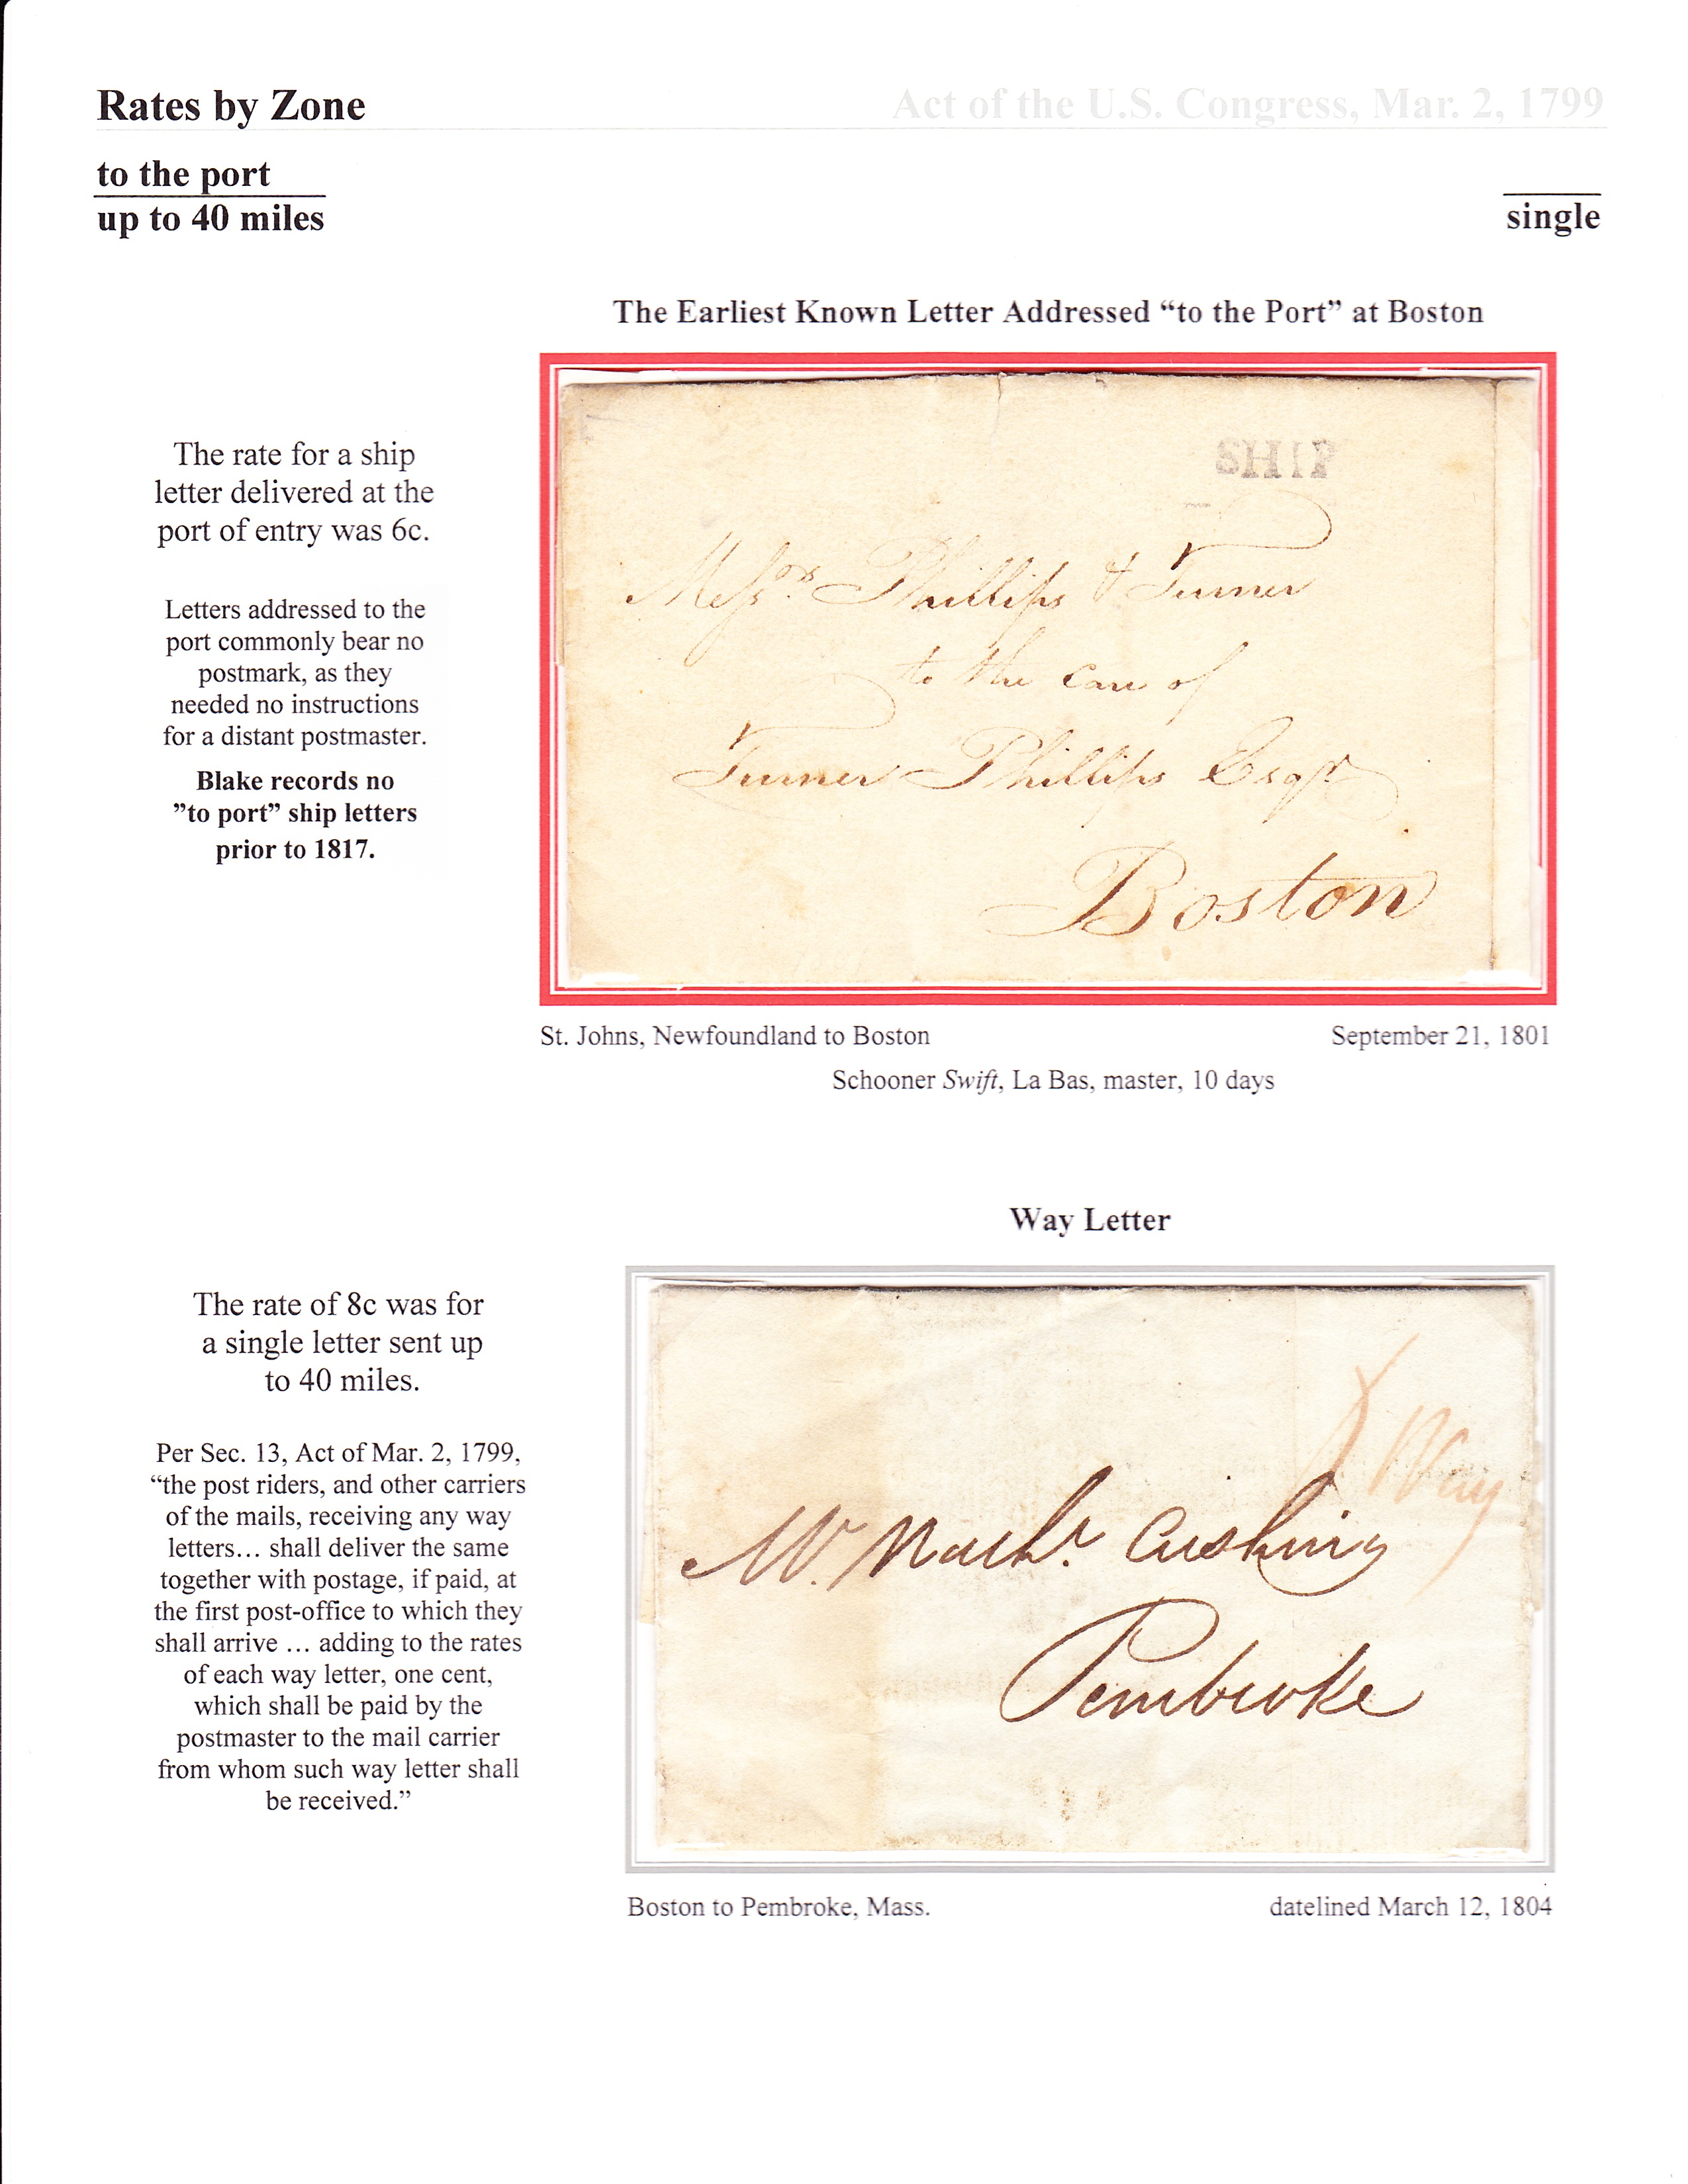 Rates by Zone
Act of the U.S. Congress, Mar. 2, 1799
to the port
up to 40 miles
single
The Earliest Known Letter Addressed “to the Port” at Boston
The rate for a ship
letter delivered at the
port of entry was 6c.
Letters addressed to the
port commonly bear no
postmark, as they
needed no instructions
for a distant postmaster.
Blake records no
”to port” ship letters
prior to 1817.
SHIP
Messrs. Phillips & Turner
to the care of
Turner Phillips Esqr
Boston
St. Johns, Newfoundland to Boston
September 21, 1801
Schooner Swift, La Bas, master, 10 days
Way Letter
The rate of 8c was for
a single letter sent up
to 40 miles.
Per Sec. 13, Act of Mar. 2, 1799,
“the post riders, and other carriers
of the mails, receiving any way
letters… shall deliver the same
together with postage, if paid, at
the first post-office to which they
shall arrive … adding to the rates
of each way letter, one cent,
which shall be paid by the
postmaster to the mail carrier
from whom such way letter shall
be received.”
Way
Mr. Nathl. Cushing
Pembroke
Boston to Pembroke, Mass.
datelined March 12, 1804